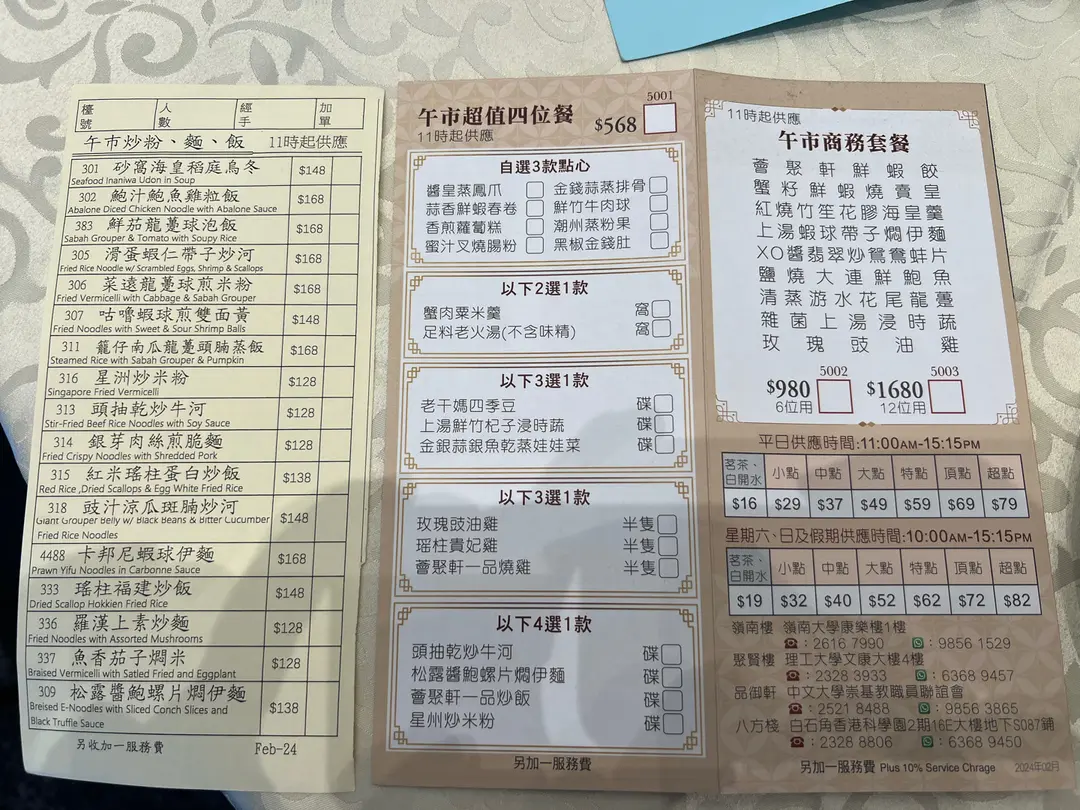 檯號 人數 經手 加單
午市炒粉、麵、飯 11時起供應
301 砂窩海皇稻庭烏冬 $148
Seafood Inaniwa Udon in Soup
302 鮑汁鮑魚雞粒飯 $168
Abalone Diced Chicken Noodle with Abalone Sauce
383 鮮茄龍躉球泡飯 $168
Sabah Grouper & Tomato with Soupy Rice
305 滑蛋蝦仁帶子炒河 $168
Fried Rice Noodle w/ Scrambled Eggs, Shrimp & Scallops
306 菜遠龍躉球煎米粉 $168
Fried Vermicelli with Cabbage & Sabah Grouper
307 咕嚕蝦球煎雙面黃 $148
Fried Noodles with Sweet & Sour Shrimp Balls
311 籠仔南瓜龍躉頭腩蒸飯 $168
Steamed Rice with Sabah Grouper & Pumpkin
316 星洲炒米粉 $128
Singapore Fried Vermicelli
313 頭抽乾炒牛河 $128
Stir-Fried Beef Rice Noodles with Soy Sauce
314 銀芽肉絲煎脆麵 $128
Fried Crispy Noodles with Shredded Pork
315 紅米瑤柱蛋白炒飯 $138
Red Rice ,Dried Scallops & Egg White Fried Rice
318 豉汁涼瓜斑腩炒河 $148
Giant Grouper Belly w/ Black Beans & Bitter Cucumber
Fried Rice Noodles
4488 卡邦尼蝦球伊麵 $168
Prawn Yifu Noodles in Carbonne Sauce
333 瑤柱福建炒飯 $148
Dried Scallop Hokkien Fried Rice
336 羅漢上素炒麵 $128
Fried Noodles with Assorted Mushrooms
337 魚香茄子燜米 $128
Braised Vermicelli with Satled Fried and Eggplant
309 松露醬鮑螺片燜伊麵 $138
Breised E-Noodles with Sliced Conch Slices and
Black Truffle Sauce
另收加一服務費 Feb-24
午市超值四位餐 $568 5001
11時起供應
自選3款點心
醬皇蒸鳳爪 金錢蒜蒸排骨
蒜香鮮蝦春卷 鮮竹牛肉球
香煎蘿蔔糕 潮州蒸粉果
蜜汁叉燒腸粉 黑椒金錢肚
以下2選1款
蟹肉粟米羹 窩
足料老火湯(不含味精) 窩
以下3選1款
老干媽四季豆 碟
上湯鮮竹杞子浸時蔬 碟
金銀蒜銀魚乾蒸娃娃菜 碟
以下3選1款
玫瑰豉油雞 半隻
瑶柱貴妃雞 半隻
薈聚軒一品燒雞 半隻
以下4選1款
頭抽乾炒牛河 碟
松露醬鮑螺片燜伊麵 碟
薈聚軒一品炒飯 碟
星州炒米粉 碟
另加一服務費
11時起供應
午市商務套餐
薈聚軒鮮蝦餃
蟹籽鮮蝦燒賣皇
紅燒竹笙花膠海皇羹
上湯蝦球帶子燜伊麵
XO醬翡翠炒鴛鴦蚌片
鹽燒大連鮮鮑魚
清蒸游水花尾龍躉
雜菌上湯浸時蔬
玫瑰豉油雞
$980 5002 $1680 5003
6位用 12位用
平日供應時間:11:00AM-15:15PM
茗茶、白開水 小點 中點 大點 特點 頂點 超點
$16 $29 $37 $49 $59 $69 $79
星期六、日及假期供應時間:10:00AM-15:15PM
茗茶、白開水 小點 中點 大點 特點 頂點 超點
$19 $32 $40 $52 $62 $72 $82
嶺南樓 嶺南大學康樂樓1樓
☎：2616 7990 ：9856 1529
聚賢樓 理工大學文康大樓4樓
☎：2328 3933 ：6368 9457
品御軒 中文大學崇基教職員聯誼會
☎：2521 8488 ：9856 3865
八方棧 白石角香港科學園2期16E大樓地下S087鋪
☎：2328 8806 ：6368 9450
另加一服務費 Plus 10% Service Chrage 2024年02月